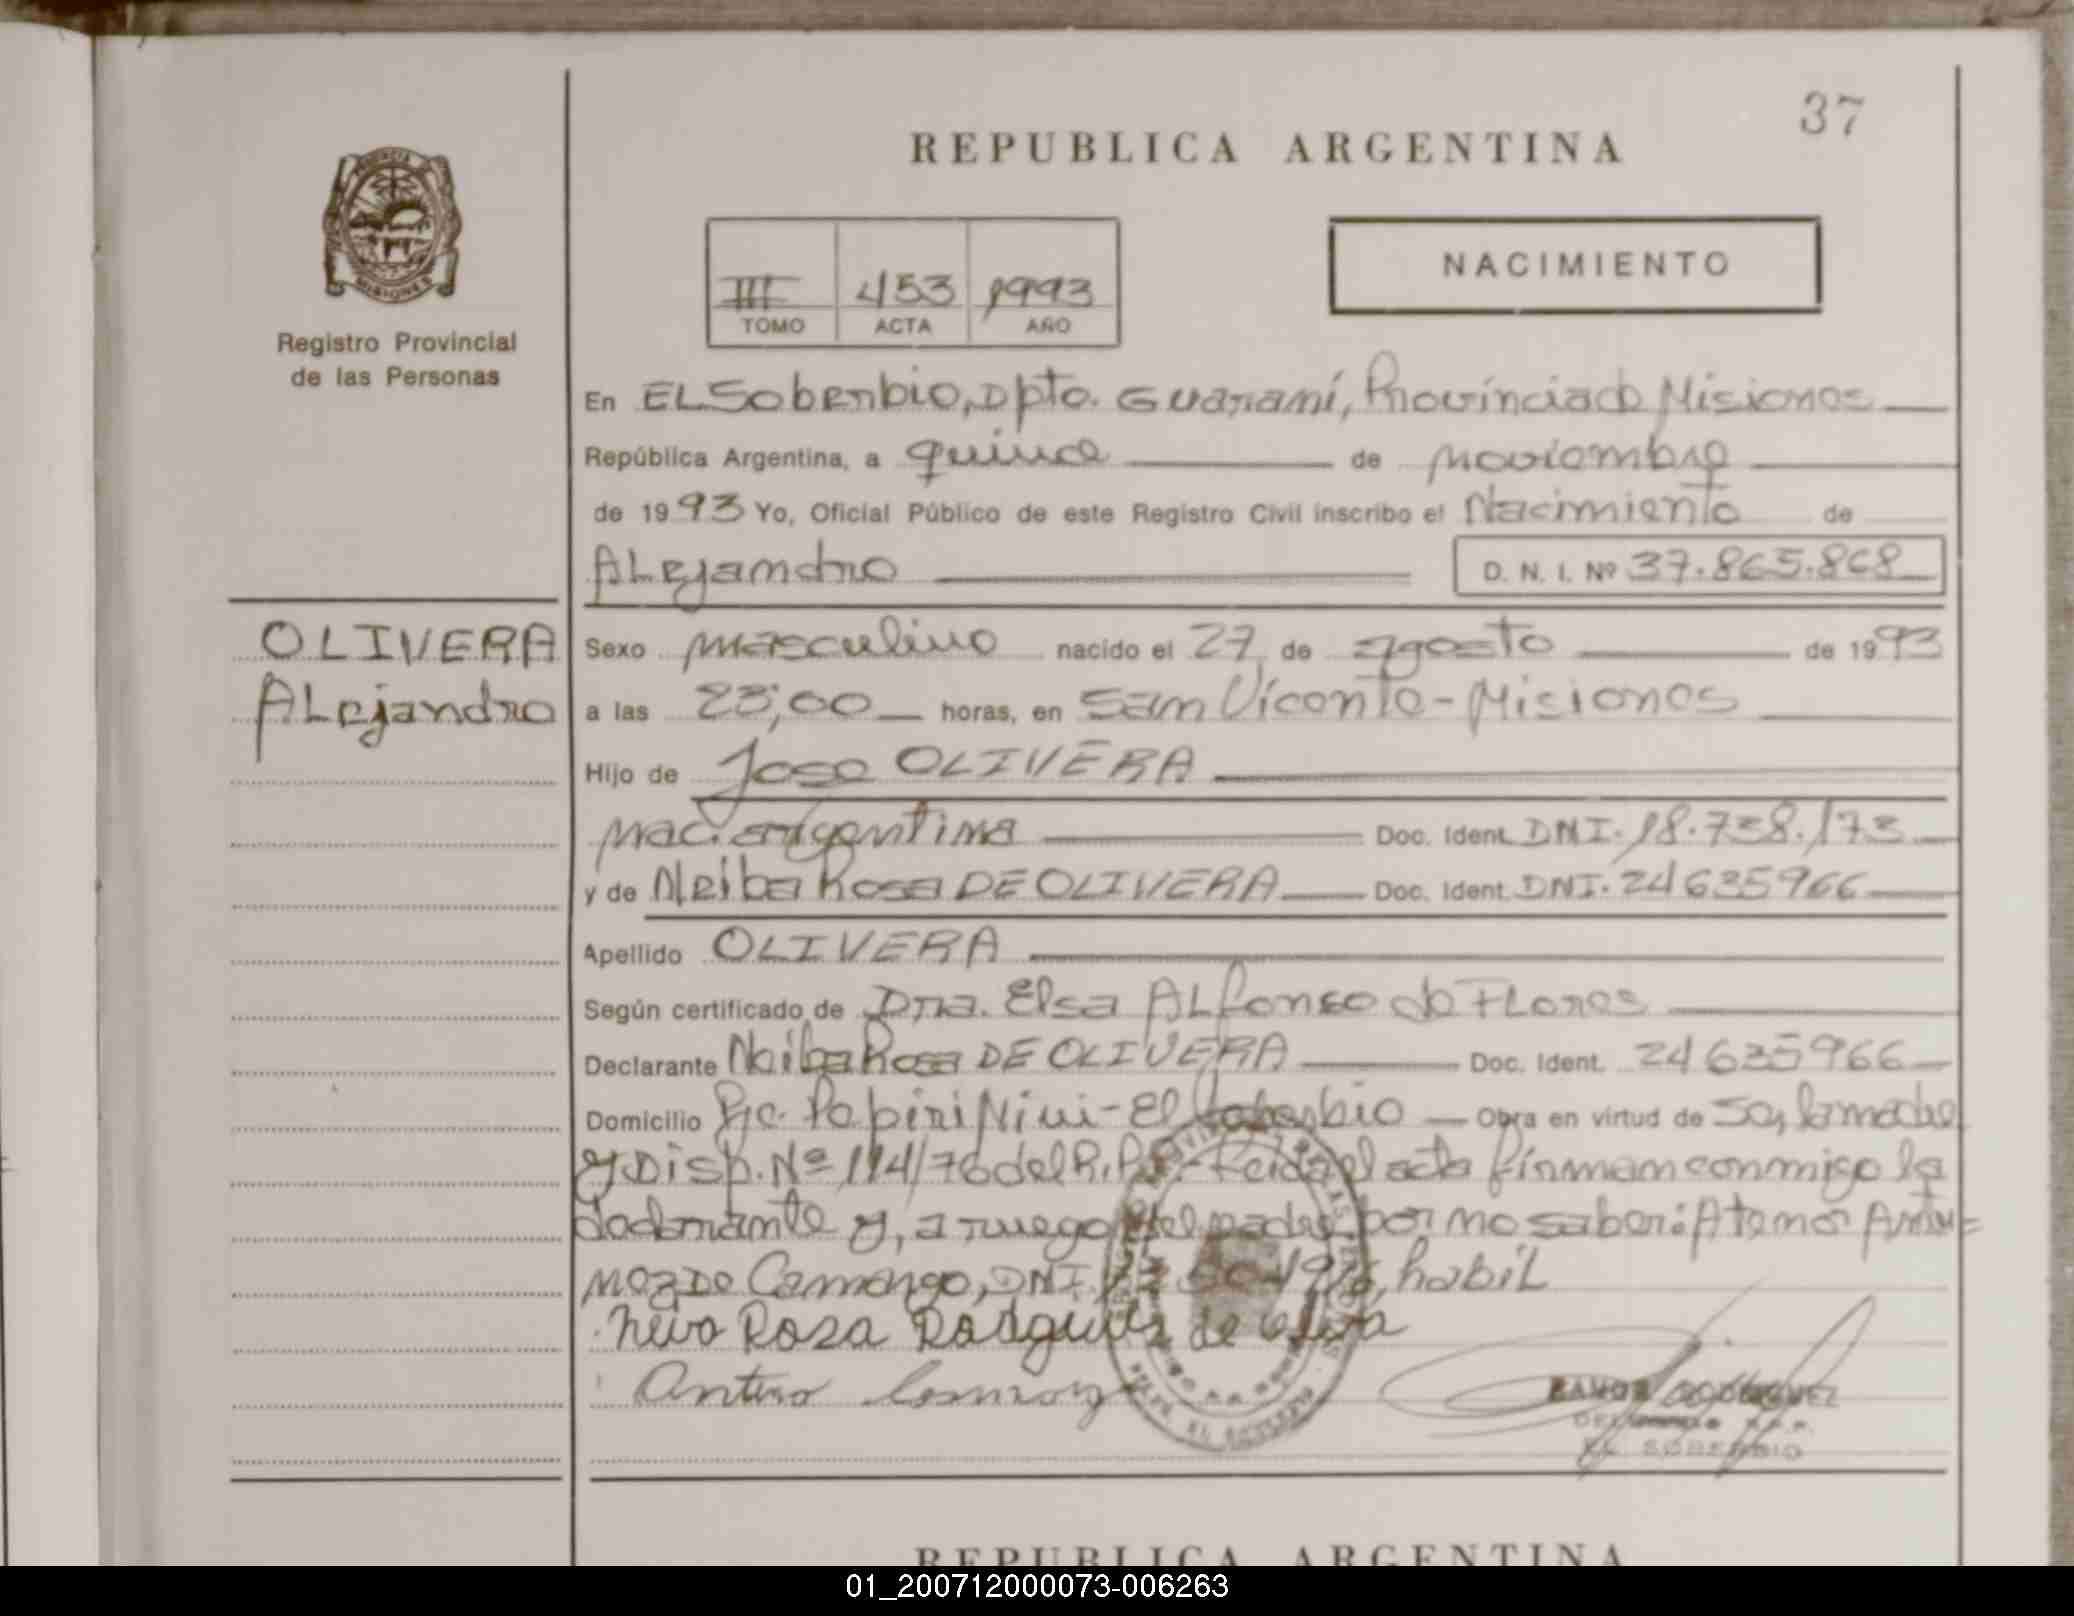 37
REPUBLICA ARGENTINA
NACIMIENTO
III 453 1993
TOMO ACTA AÑO
Registro Provincial
de las Personas
En EL Soberbio, Dpto. Guaraní, Provincia de Misiones
República Argentina, a quince de noviembre
de 1993 Yo, Oficial Público de este Registro Civil inscribo el Nacimiento de
Alejandro D. N. I. Nº 37.865.868
OLIVERA
Alejandro
Sexo masculino nacido el 27 de agosto de 1993
a las 23,00 horas, en San Vicente - Misiones
Hijo de Jose OLIVERA
nac. argentina Doc. Ident. DNI. 18.738.173
y de Neiba Rosa DE OLIVERA Doc. Ident. DNI. 24635966
Apellido OLIVERA
Según certificado de Dra. Elsa ALfonso de Flores
Declarante Neiba Rosa DE OLIVERA Doc. Ident. 24635966
Domicilio Pje. Pepiri Mini - El Soberbio Obra en virtud de ser la madre
y Disp. Nº 114/76 del R.P.P. - Leida el acta firman conmigo la
declarante y, a ruego del padre por no saber:
de Camargo, DNI. habil
Rosa de
RAMON RODRIGUEZ
EL SOBERBIO
REPUBLICA ARGENTINA
01_200712000073-006263